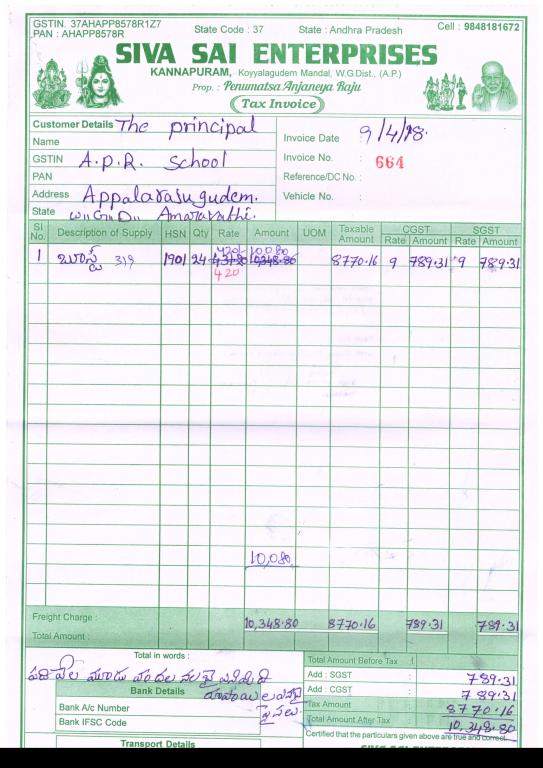 GSTIN. 37AHAPP8578R1Z7
PAN : AHAPP8578R
State Code : 37
State : Andhra Pradesh
Cell : 9848181672
SIVA SAI ENTERPRISES
KANNAPURAM, Koyyalagudem Mandal, W.G.Dist., (A.P.)
Prop. : Penumatsa Anjaneya Raju
Tax Invoice
Customer Details The principal
Name
GSTIN A.P.R. School
PAN
Address Appalarajugudem.
State W"G"D" Amaravathi.
Invoice Date : 9/4/18.
Invoice No. : 664
Reference/DC No. :
Vehicle No. :
Sl No. Description of Supply HSN Qty Rate Amount UOM Taxable Amount CGST Rate Amount SGST Rate Amount
420/- 10080
1 బూస్ట్ 1901 24 10,348.80 8770.16 9 789.31 9 789.31
420
10,080
Freight Charge : 10,348.80 8770.16 789.31 789.31
Total Amount :
Total in words :
పది వేల మూడు వందల నలభై ఎనిమిది
రూపాయల
పైసలు
Bank Details
Bank A/c Number
Bank IFSC Code
Transport Details
Total Amount Before Tax :
Add : SGST : 789.31
Add : CGST : 789.31
Tax Amount : 8770.16
Total Amount After Tax : 10,348.80
Certified that the particulars given above are true and correct.
SIVA SAI ENTERPRISES